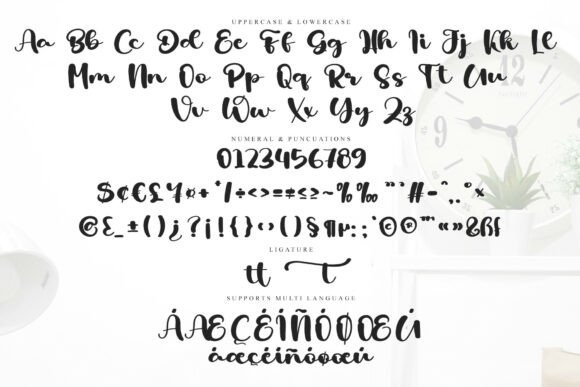 UPPERCASE & LOWERCASE
Aa Bb Cc Dd Ee Ff Gg Hh Ii Jj Kk Ll
Mm Nn Oo Pp Qq Rr Ss Tt Uu
Vv Ww Xx Yy Zz
NUMERAL & PUNCUATIONS
0123456789
$¢€£¥¤+*/÷<>=≠≤≥~%‰"'#-^,.°×
@&_±()¿?¡!{}‹›()§¶µ:;'©®™«»&ßf
LIGATURE
tt t
SUPPORTS MULTI LANGUAGE
ÁÆÇÉÍÑÓØŒÚ
áæçéíñóøœú
12